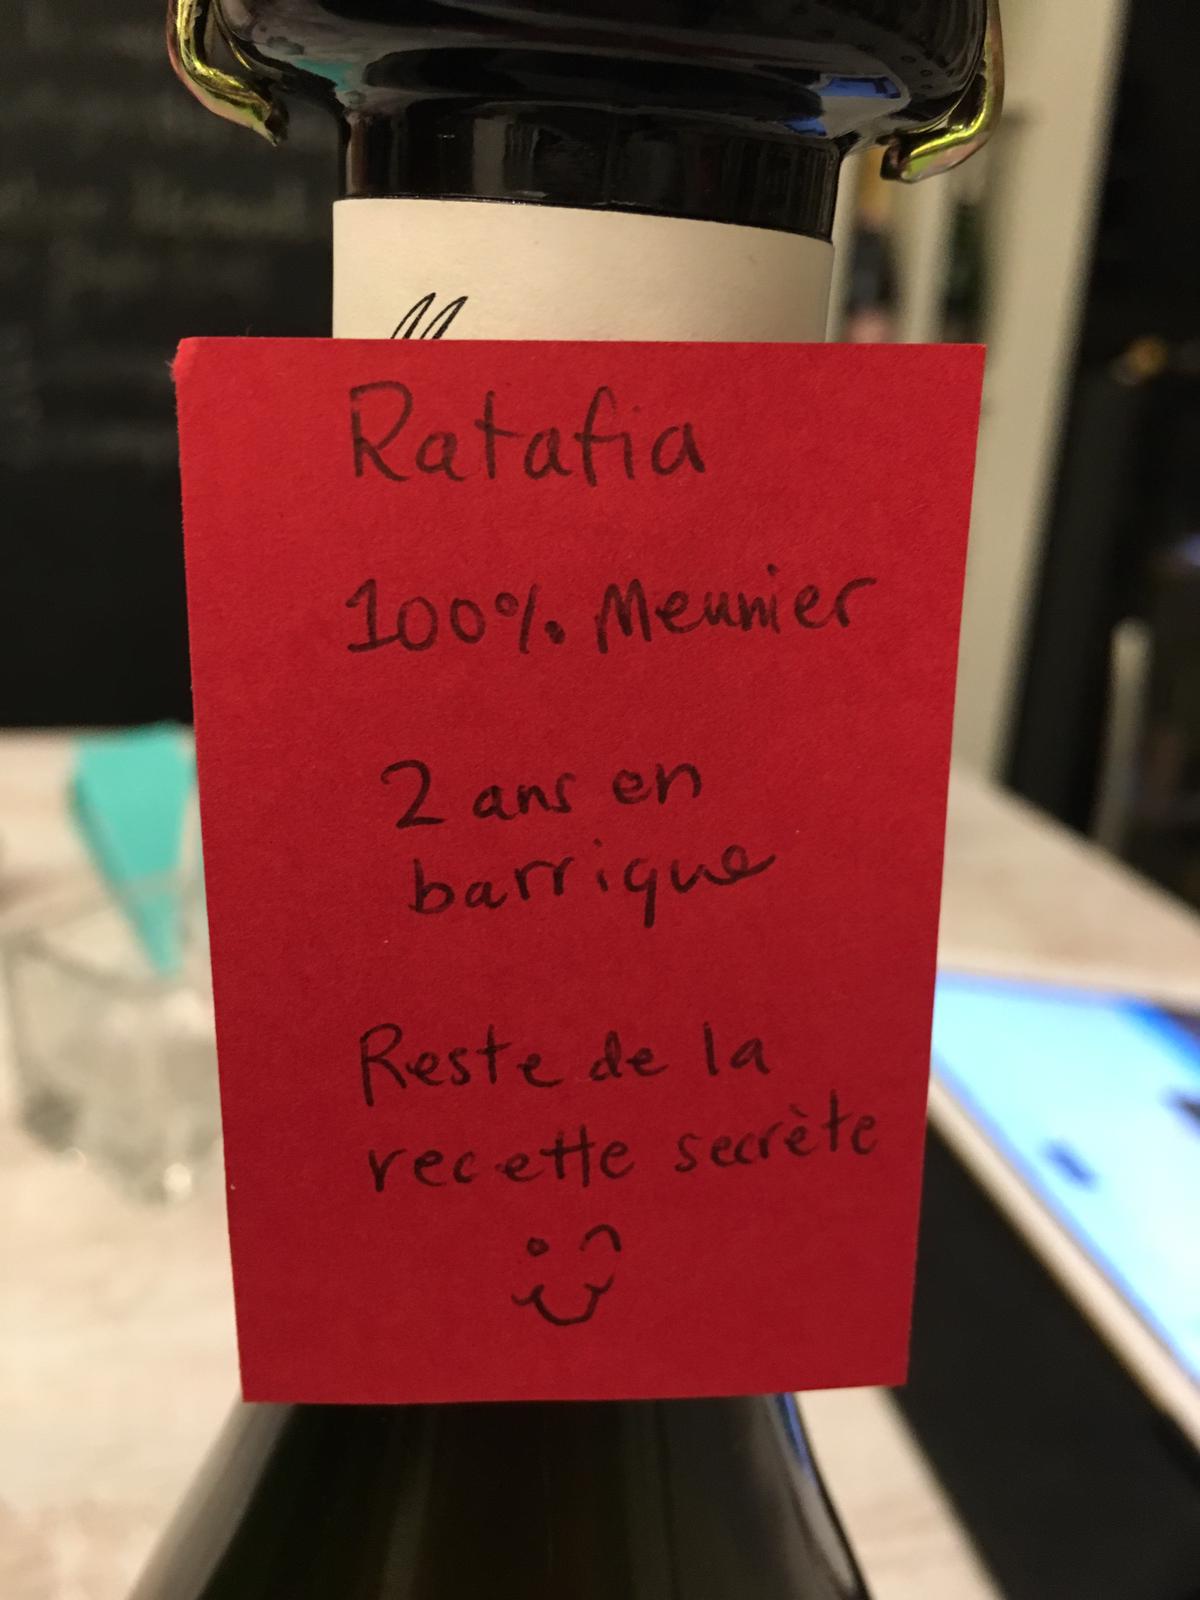 Ratafia
100% Meunier
2 ans en
barrique
Reste de la
recette secrète